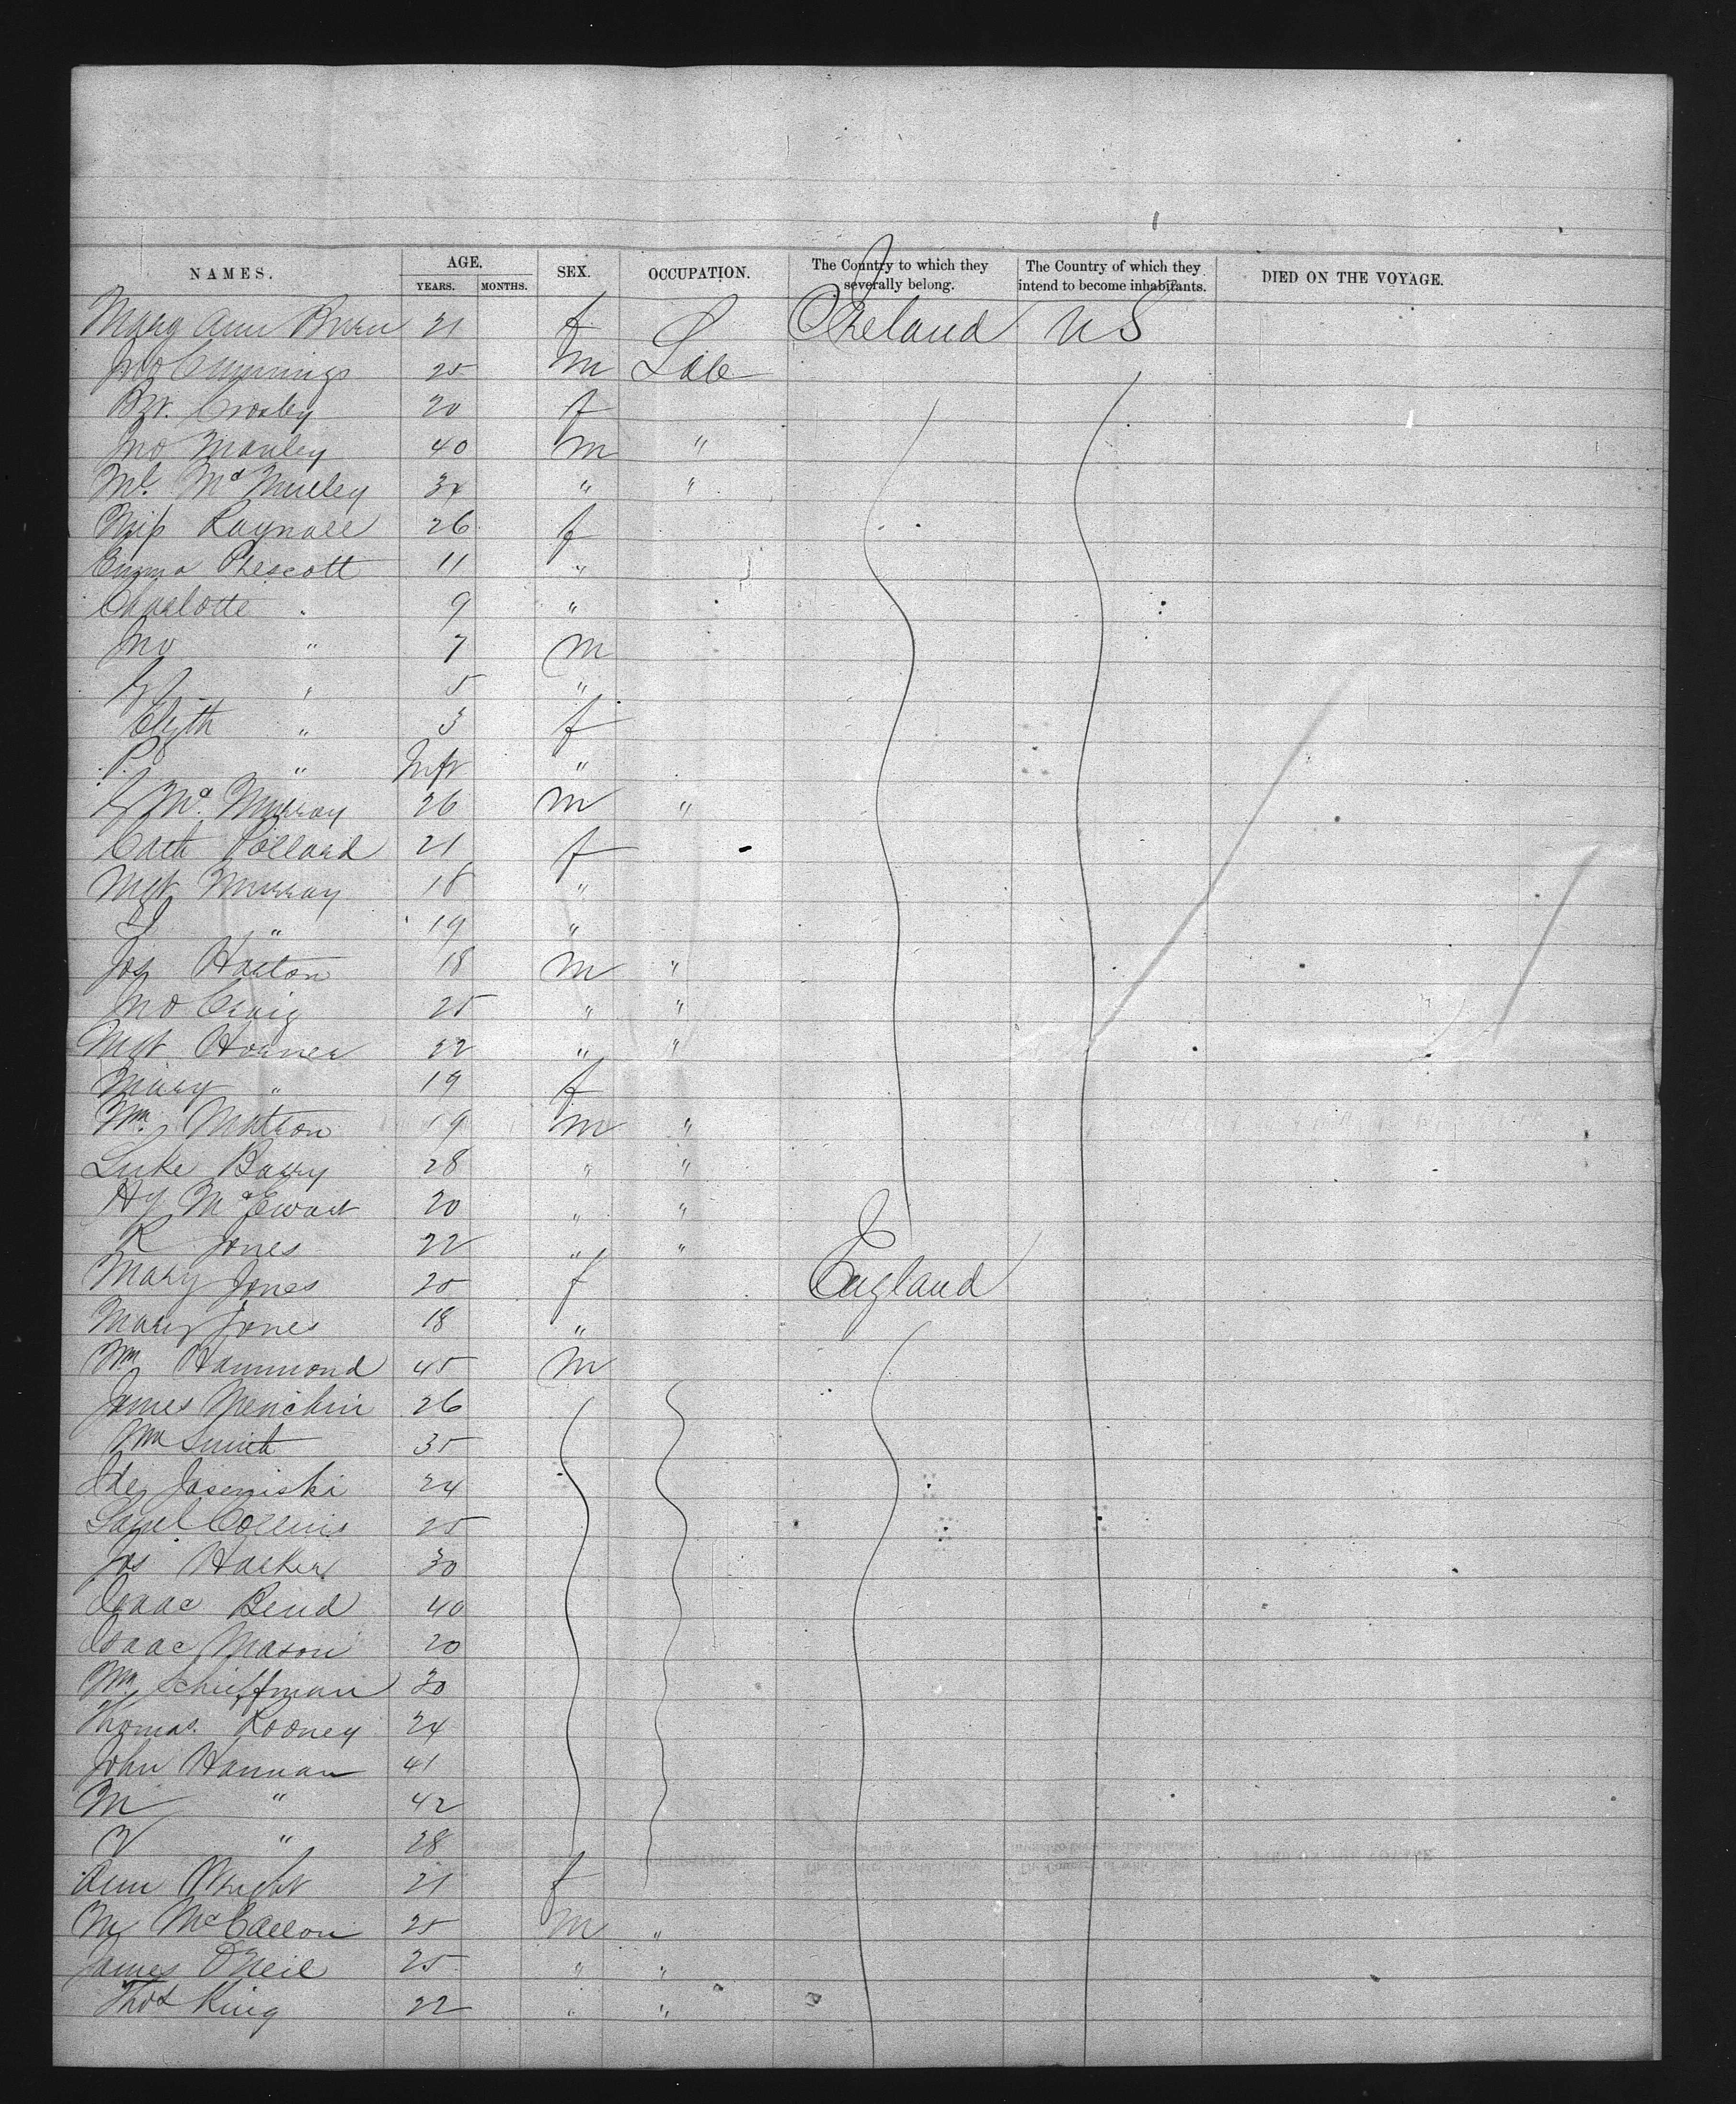 NAMES. AGE. YEARS. MONTHS. SEX. OCCUPATION. The Country to which they severally belong. The Country of which they intend to become inhabitants. DIED ON THE VOYAGE.
Mary Ann 21 f Ireland US
Jno Cummings 25 m Lab
Crosley 20 f
Jno Manley 40 m "
Ml. 34 " "
Miss Raynall 26 f
Emma Prescott 11 "
Charlotte " 9 "
Jno " 7 m
" 5 "
" 3 f
P " Inft "
Murray 26 m "
Cath Pollard 21 f
Mgt Murray 18 "
" 19 "
Jos Harton 18 m "
Jno Craig 25 " "
Mgt Horner 22 " "
Mary " 19 f
Wm. Matson 19 m "
Luke Barry 28 " "
Hy. McEwart 20 " "
R Jones 22 " "
Mary Jones 20 f England
Mary Jones 18 "
Wm Hammond 45 m
James 26
Wm Smith 35
24
Collins 25
Jos Harker 30
Isaac Bend 40
Isaac Mason 20
Wm Schiffman 30
Thomas Rooney 24
John Hannan 41
M " 42
" 28
Ann Wright 21 f
M McCallon 25 m "
James O'Neil 25 " "
Thos King 22 " "